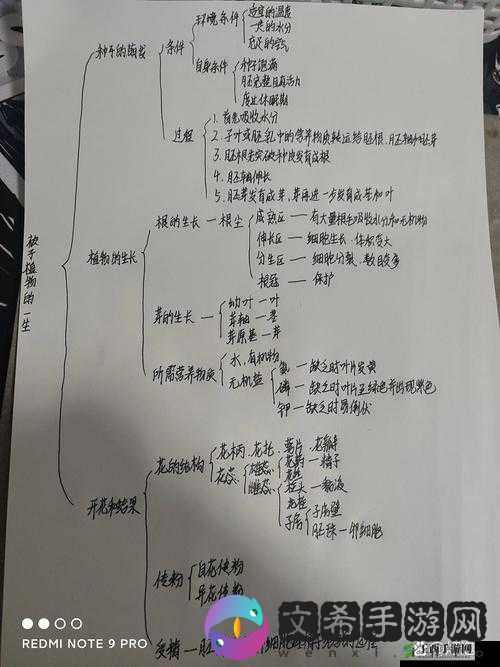 被子植物的一生
种子的萌发
条件
环境条件
适宜的温度
一定的水分
充足的空气
自身条件
种子饱满
胚完整且有活力
度过休眠期
过程
1. 首先吸收水分
2. 子叶或胚乳中的营养物质转运给胚根、胚轴和胚芽
3. 胚根先突破种皮发育成根
4. 胚轴伸长
5. 胚芽发育成芽,芽再进一步发育成茎和叶
植物的生长
根的生长 — 根尖
成熟区 — 有大量根毛吸收水分和无机物
伸长区 — 细胞生长,体积变大
分生区 — 细胞分裂,数目变多
根冠 — 保护
芽的生长
幼叶 — 叶
芽轴 — 茎
芽原基 — 芽
所需营养物质
水,有机物
无机盐
氮 — 缺乏时叶片发黄
磷 — 缺乏时叶片呈绿色并出现紫色
钾 — 缺乏时易倒伏
开花和结果
花的结构
花柄、花托、萼片、花瓣
花蕊
雄蕊
花药 — 精子
花丝
雌蕊
柱头 — 黏液
花柱
子房
子房壁
胚珠 — 卵细胞
传粉
自花传粉
异花传粉
受精 — 胚
REDMI NOTE 9 PRO
文希手游网